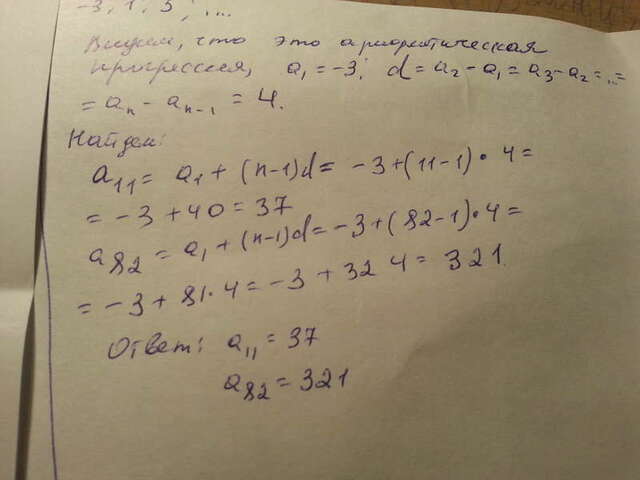 -3; 1; 5; ...
Видим, что это арифметическая
прогрессия, a₁ = -3; d = a₂ - a₁ = a₃ - a₂ = ... =
= aₙ - aₙ₋₁ = 4.
Найдем:
a₁₁ = a₁ + (n-1)d = -3 + (11-1) · 4 =
= -3 + 40 = 37
a₈₂ = a₁ + (n-1)d = -3 + (82-1) · 4 =
= -3 + 81 · 4 = -3 + 324 = 321
Ответ: a₁₁ = 37
a₈₂ = 321